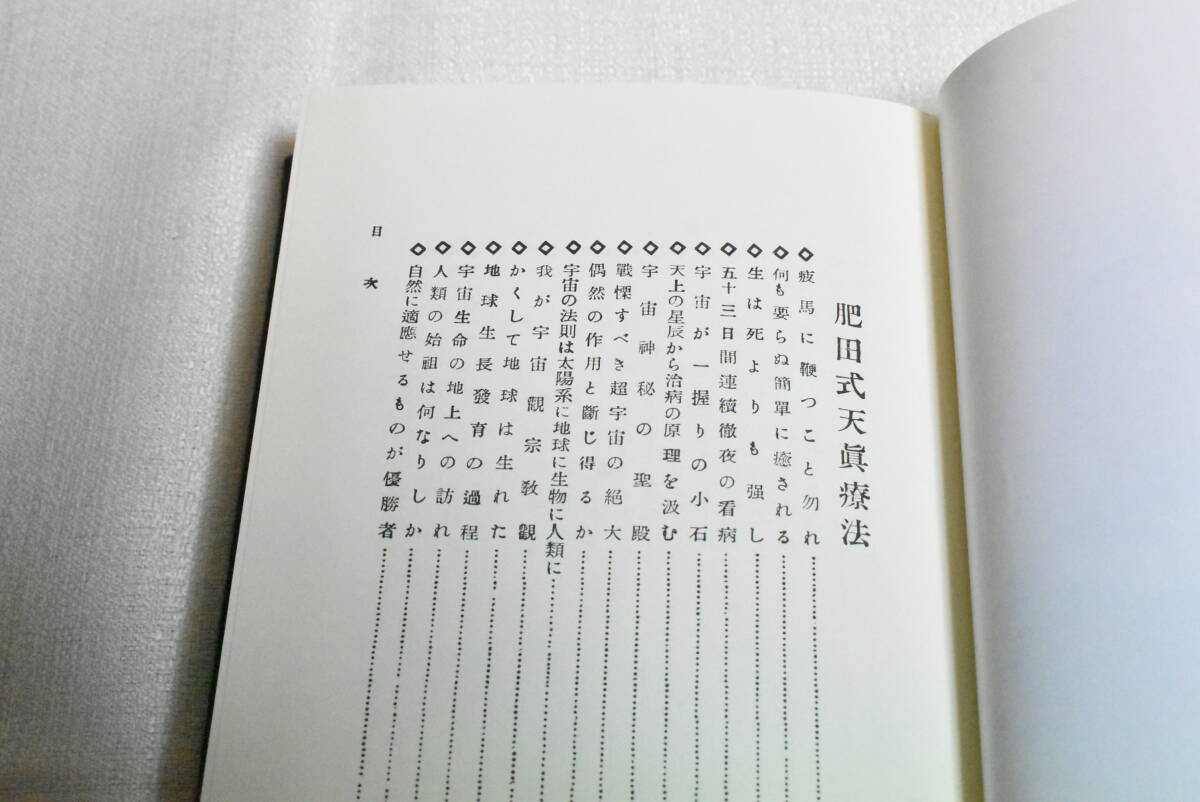 肥田式天眞療法
◇疲馬に鞭つこと勿れ
◇何も要らぬ簡單に癒される
◇生は死よりも强し
◇五十三日間連續徹夜の看病
◇宇宙が一握りの小石
◇天上の星辰から治病の原理を汲む
◇宇宙神秘の聖殿
◇戰慄すべき超宇宙の絕大
◇偶然の作用と斷じ得るか
◇宇宙の法則は太陽系に地球に生物に人類に
◇我が宇宙觀宗敎觀
◇かくして地球は生れた
◇地球生長發育の過程
◇宇宙生命の地上への訪れ
◇人類の始祖は何なりしか
◇自然に適應せるものが優勝者
目次